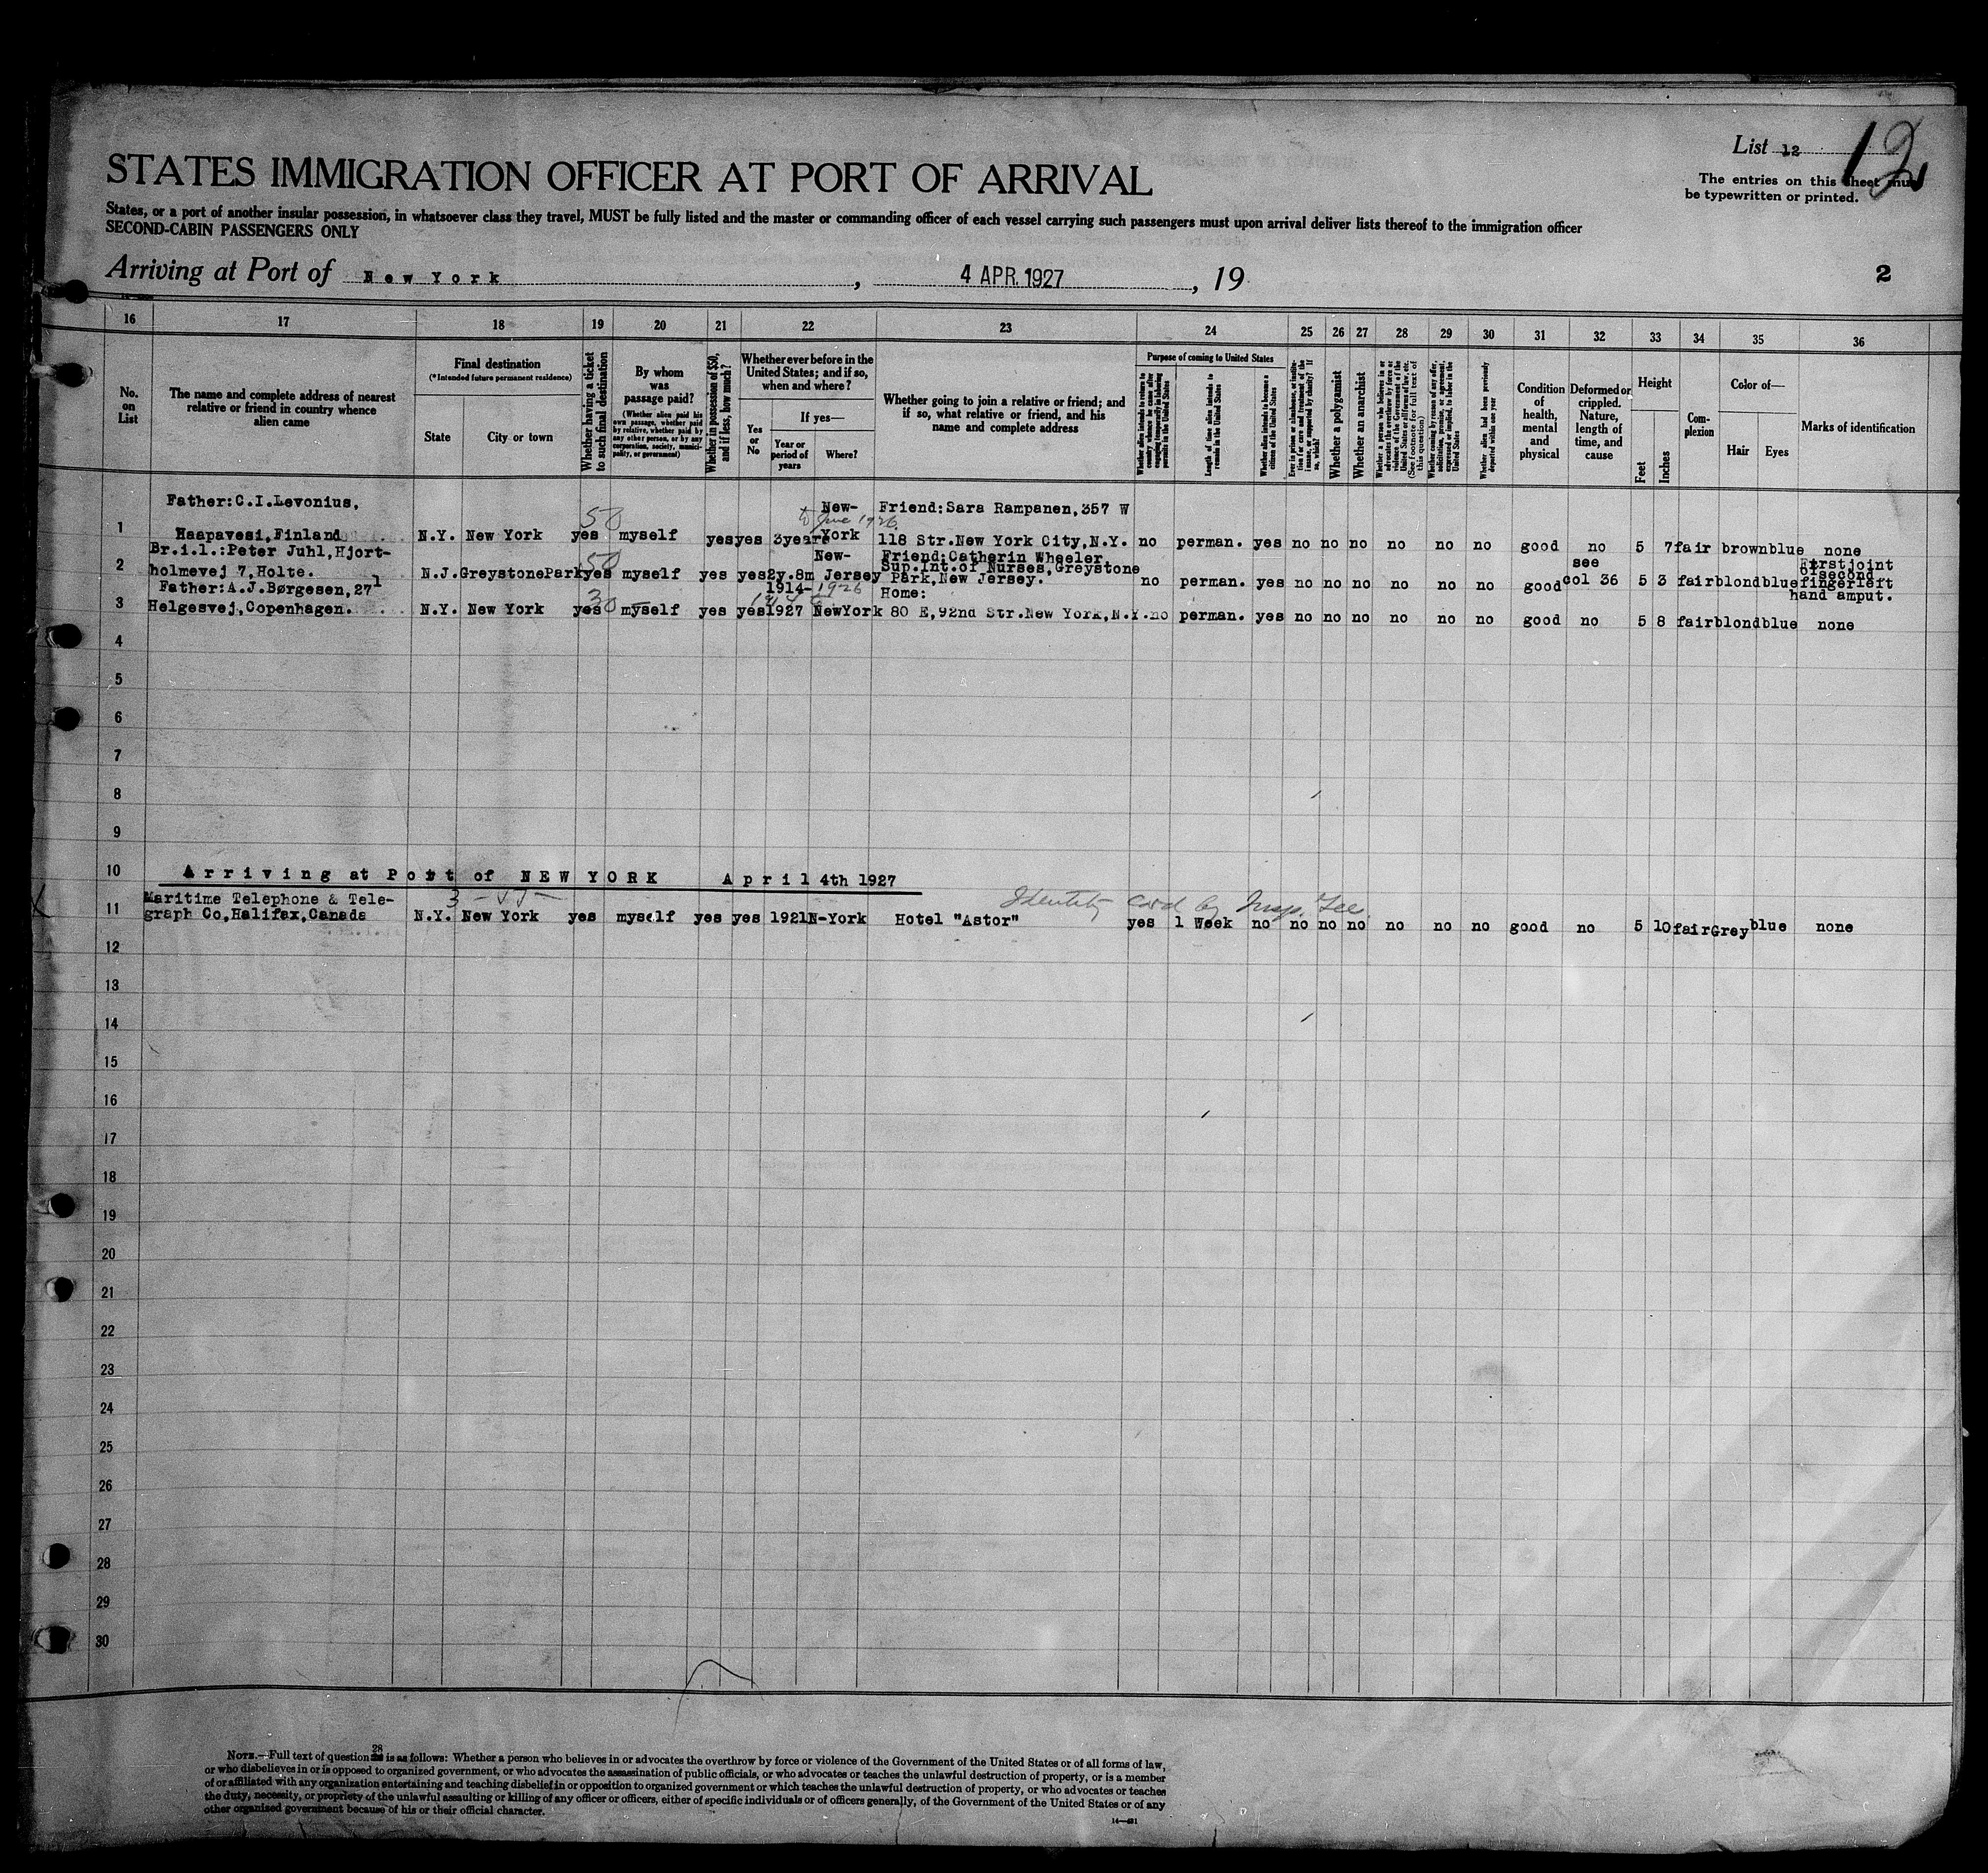 List 12 12
The entries on this sheet must
be typewritten or printed.
STATES IMMIGRATION OFFICER AT PORT OF ARRIVAL
States, or a port of another insular possession, in whatsoever class they travel, MUST be fully listed and the master or commanding officer of each vessel carrying such passengers must upon arrival deliver lists thereof to the immigration officer
SECOND-CABIN PASSENGERS ONLY
Arriving at Port of New York, 4 APR. 1927, 19
2
16 17 18 19 20 21 22 23 24 25 26 27 28 29 30 31 32 33 34 35 36
No. on List
The name and complete address of nearest relative or friend in country whence alien came
Final destination
(*Intended future permanent residence)
State
City or town
Whether having a ticket to such final destination
By whom was passage paid?
(Whether alien paid his own passage, whether paid by relative, whether paid by any other person, or by any corporation, society, municipality, or government)
Whether in possession of $50, and if less, how much?
Whether ever before in the United States; and if so, when and where?
Yes or No
If yes—
Year or period of years
Where?
Whether going to join a relative or friend; and if so, what relative or friend, and his name and complete address
Purpose of coming to United States
Whether alien intends to return to country whence he came after engaging temporarily in laboring pursuits in the United States
Length of time alien intends to remain in the United States
Whether alien intends to become a citizen of the United States
Ever in prison or almshouse, or institution for care and treatment of the insane, or supported by charity? If so, which?
Whether a polygamist
Whether an anarchist
Whether a person who believes in or advocates the overthrow by force or violence of the Government of the United States or all forms of law, etc. (See footnote for full text of this question)
Whether coming by reason of any offer, solicitation, promise, or agreement, expressed or implied, to labor in the United States
Whether alien had been previously deported within one year
Condition of health, mental and physical
Deformed or crippled. Nature, length of time, and cause
Height
Feet
Inches
Complexion
Color of—
Hair
Eyes
Marks of identification
Father:C.I.Levonius, New- Friend:Sara Rampanen,357 W
50 to June 1926
1 Haapavesi,Finland N.Y. New York yes myself yes yes 3years York 118 Str.New York City,N.Y. no perman. yes no no no no no no good no 5 7 fair brown blue none
Br.i.l.:Peter Juhl,Hjort- 50 New- Friend:Catherin Wheeler see First joint
2 Sup.Int.of Nurses,Greystone of second
holmevej 7,Holte. N.J. GreystonePark yes myself yes yes 2y.8m Jersey Park,New Jersey. no perman. yes no no no no no no good col 36 5 3 fair blond blue finger left
Father:A.J.Børgesen,27 1 30 1914- 1926 Home: hand amput.
3 Helgesvej,Copenhagen. N.Y. New York yes myself yes yes 1927 NewYork 80 E,92nd Str.New York,N.Y. no perman. yes no no no no no no good no 5 8 fair blond blue none
4
5
6
7
8
9
10 Arriving at Port of NEW YORK April 4th 1927
Maritime Telephone & Tele- Identity card by Insp. Lee
11 graph Co,Halifax,Canada N.Y. New York yes myself yes yes 1921 N-York Hotel "Astor" yes 1 Week no no no no no no no good no 5 10 fair Grey blue none
12
13
14
15
16
17
18
19
20
21
22
23
24
25
26
27
28
29
30
28
NOTE.—Full text of question is as follows: Whether a person who believes in or advocates the overthrow by force or violence of the Government of the United States or of all forms of law,
or who disbelieves in or is opposed to organized government, or who advocates the assassination of public officials, or who advocates or teaches the unlawful destruction of property, or is a member
of or affiliated with any organization entertaining and teaching disbelief in or opposition to organized government or which teaches the unlawful destruction of property, or who advocates or teaches
the duty, necessity, or propriety of the unlawful assaulting or killing of any officer or officers, either of specific individuals or of officers generally, of the Government of the United States or of any
other organized government because of his or their official character.